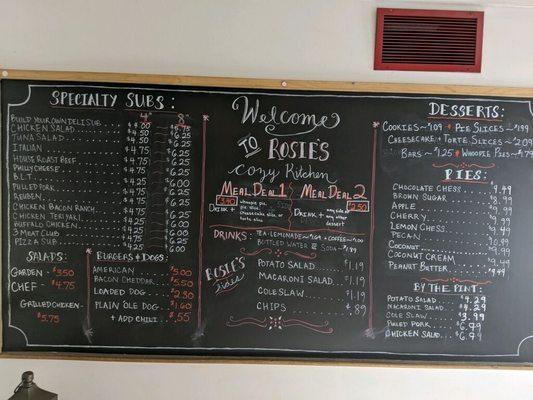 SPECIALTY SUBS:
4" 8"
BUILD YOUR OWN DELI SUB $4.00 $5.75
CHICKEN SALAD $4.50 $6.25
TUNA SALAD $4.50 $6.25
ITALIAN $4.75 $6.25
HOUSE ROAST BEEF $4.75 $6.25
PHILLY CHEESE $4.75 $6.25
B.L.T. $4.25 $6.00
PULLED PORK $4.75 $6.25
REUBEN $4.75 $6.25
CHICKEN BACON RANCH $4.75 $6.25
CHICKEN TERIYAKI $4.75 $6.25
BUFFALO CHICKEN $4.25 $6.00
3 MEAT CLUB $4.75 $6.25
PIZZA SUB $4.25 $6.00
SALADS:
GARDEN - $3.50
CHEF - $4.75
GRILLED CHICKEN -
$5.75
BURGERS & DOGS:
AMERICAN $5.00
BACON CHEDDAR $5.50
LOADED DOG $2.30
PLAIN OLE DOG $1.60
+ ADD CHILI $.55
Welcome
TO ROSIE'S
cozy Kitchen
MEAL DEAL 1
DRINK +
MEAL DEAL 2
$2.50
DRINK +
DRINKS: TEA · LEMONADE ~ $1.69 + COFFEE ~ $1.00
BOTTLED WATER & SODA
ROSIE'S
sides
POTATO SALAD $1.19
MACARONI SALAD $1.19
COLESLAW $1.19
CHIPS $.89
DESSERTS:
COOKIES ~ $1.09 + PIE SLICES ~ $1.99
CHEESECAKE + TORTE SLICES ~ $2.09
BARS ~ $1.25 + WHOOPIE PIES ~ $.79
PIES:
CHOCOLATE CHESS $9.49
BROWN SUGAR $8.99
APPLE $9.99
CHERRY $9.99
LEMON CHESS $9.49
PECAN $10.99
COCONUT $9.99
COCONUT CREAM $9.49
PEANUT BUTTER $9.49
BY THE PINT:
POTATO SALAD $4.29
MACARONI SALAD $4.29
COLE SLAW $3.99
PULLED PORK $6.79
CHICKEN SALAD $6.79